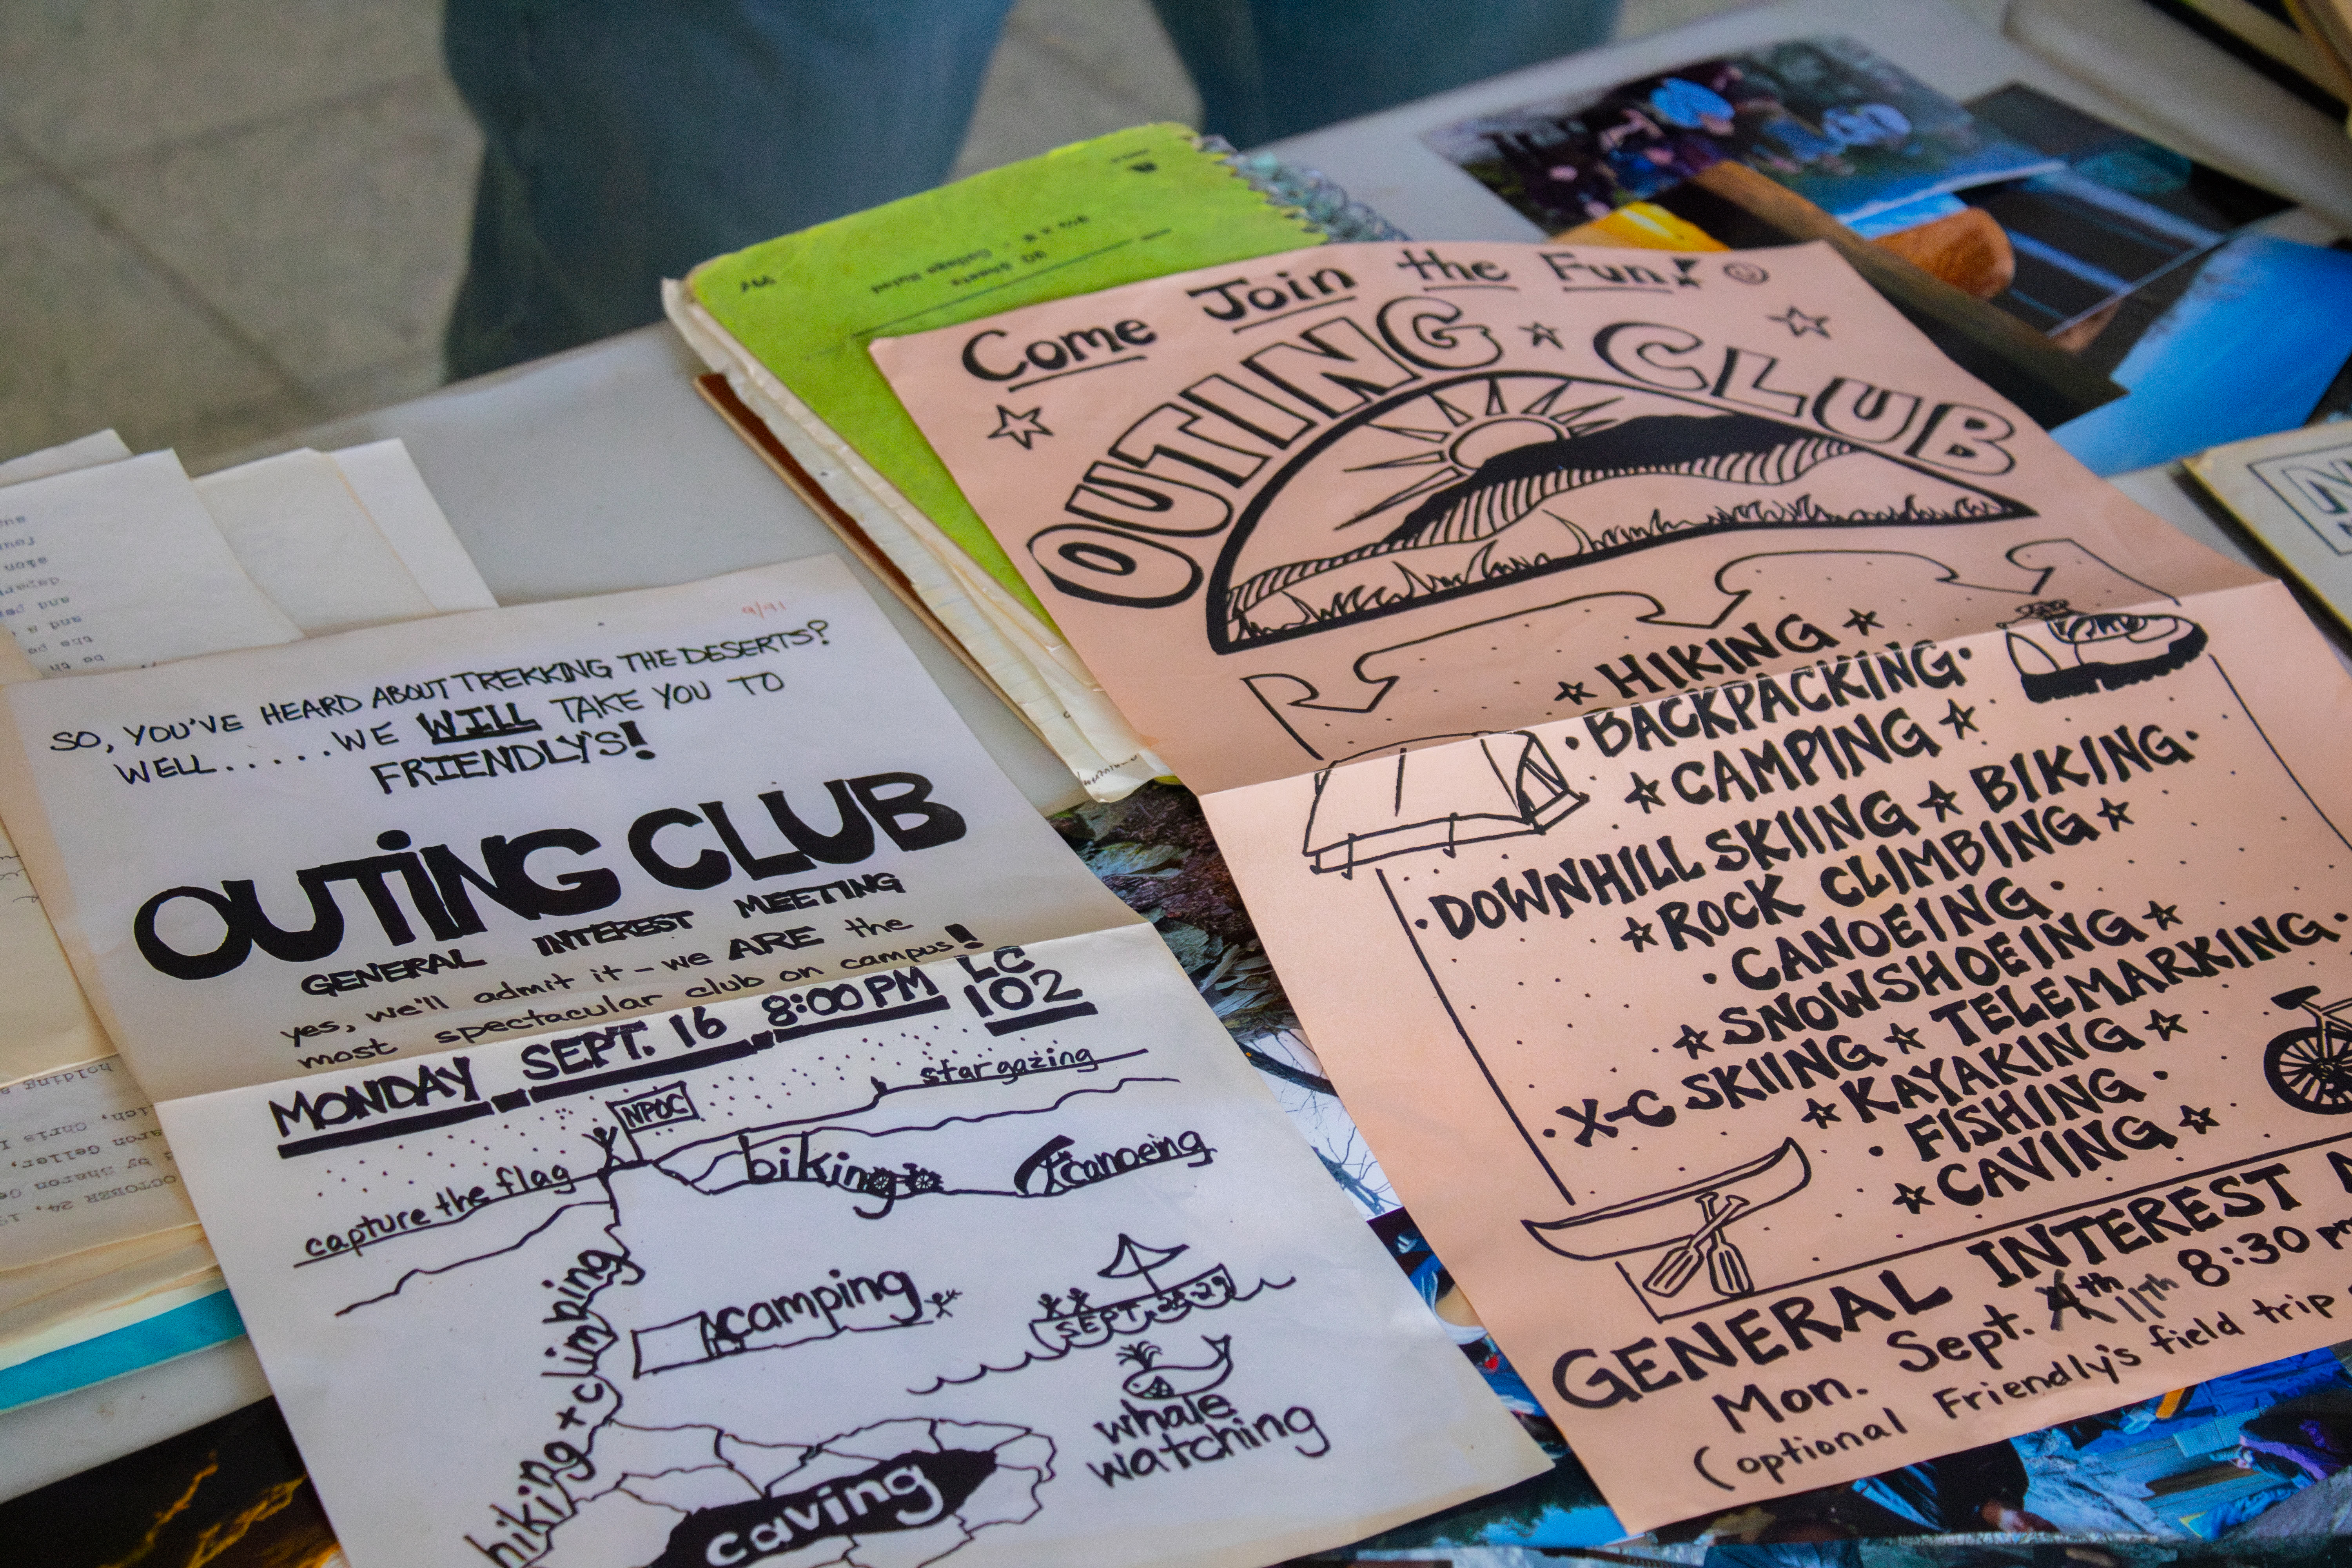 9/91
SO, YOU'VE HEARD ABOUT TREKKING THE DESERTS?
WELL.....WE WILL TAKE YOU TO
FRIENDLY'S!
OUTING CLUB
GENERAL INTEREST MEETING
yes, we'll admit it - we ARE the
most spectacular club on campus!
MONDAY SEPT. 16 8:00 PM LC
102
NPOC
stargazing
capture the flag
biking
canoeing
hiking + climbing
camping
SEPT. 28-29
whale
watching
caving
Come Join the Fun!
OUTING CLUB
HIKING
BACKPACKING
CAMPING
DOWNHILL SKIING BIKING
ROCK CLIMBING
CANOEING
SNOWSHOEING
X-C SKIING TELEMARKING
KAYAKING
FISHING
CAVING
GENERAL INTEREST
Mon. Sept. 11th 8:30 pm
(optional Friendly's field trip
80 Sheets
College Ruled
OCTOBER 24,
by Sharon
Chris
holding